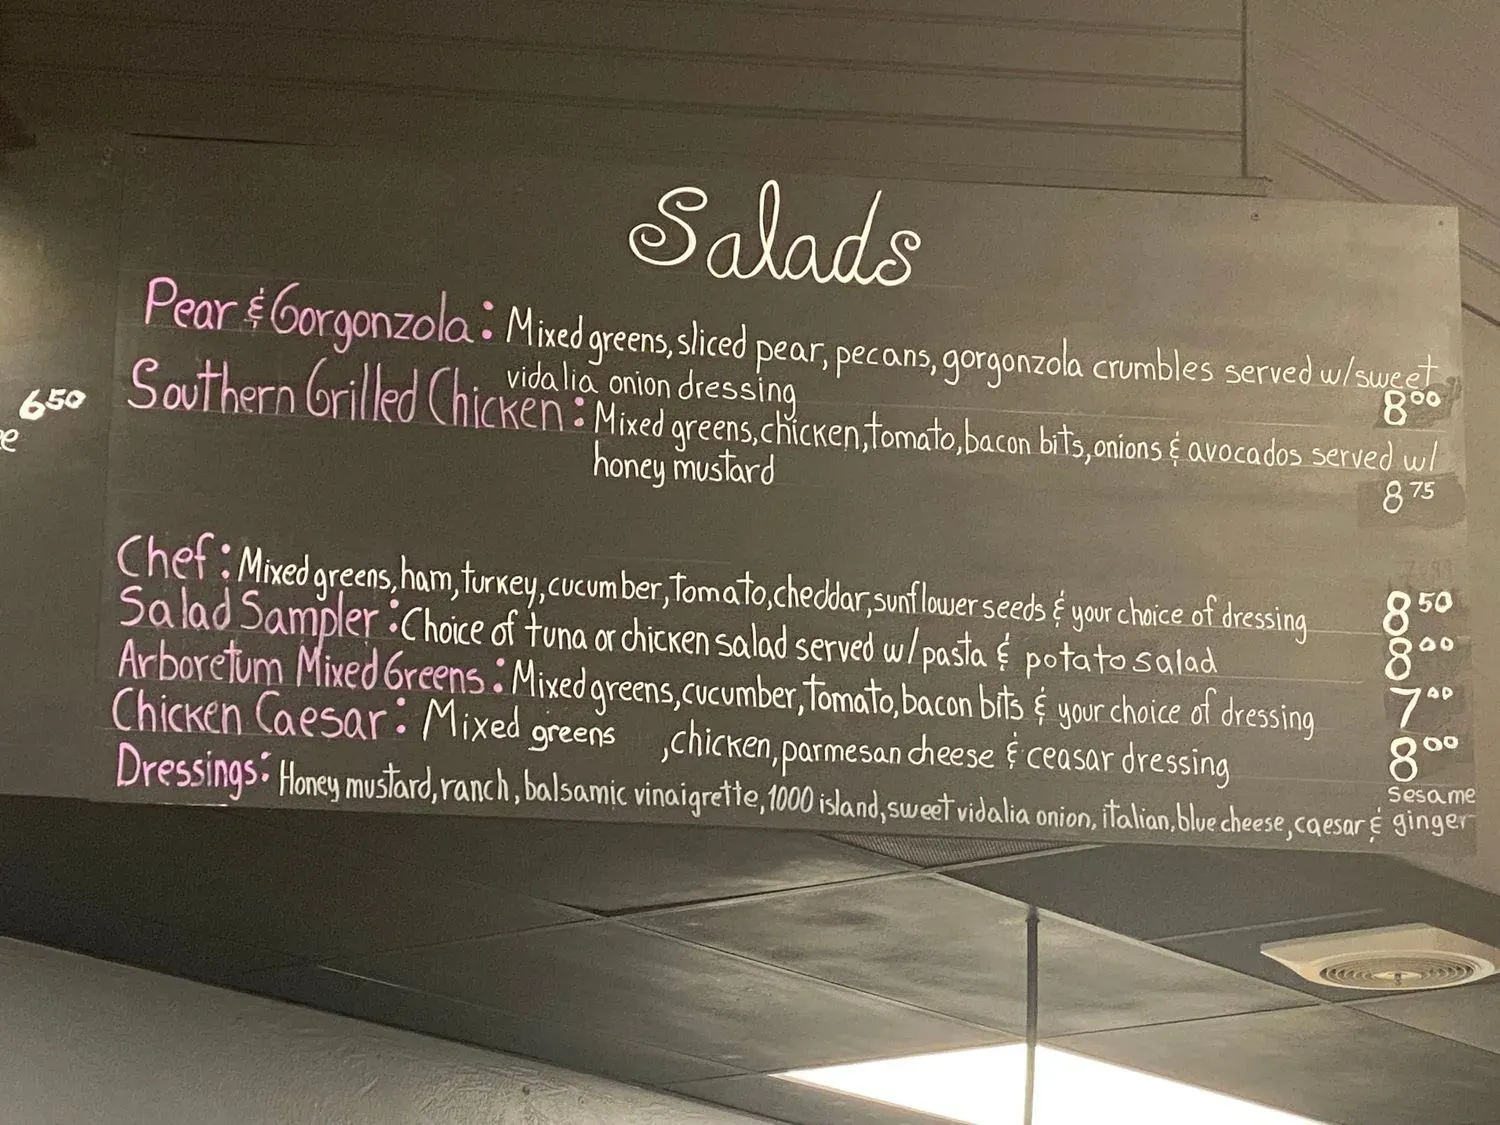 Salads
Pear & Gorgonzola: Mixed greens, sliced pear, pecans, gorgonzola crumbles served w/sweet
vidalia onion dressing 8⁰⁰
Southern Grilled Chicken: Mixed greens, chicken, tomato, bacon bits, onions & avocados served w/
honey mustard
8⁷⁵
6⁵⁰
Chef: Mixed greens, ham, turkey, cucumber, tomato, cheddar, sunflower seeds & your choice of dressing 8⁵⁰
Salad Sampler: Choice of tuna or chicken salad served w/pasta & potato salad 8⁰⁰
Arboretum Mixed Greens: Mixed greens, cucumber, tomato, bacon bits & your choice of dressing 7⁰⁰
Chicken Caesar: Mixed greens , chicken, parmesan cheese & ceasar dressing 8⁰⁰
Dressings: Honey mustard, ranch, balsamic vinaigrette, 1000 island, sweet vidalia onion, italian, blue cheese, caesar & sesame
ginger